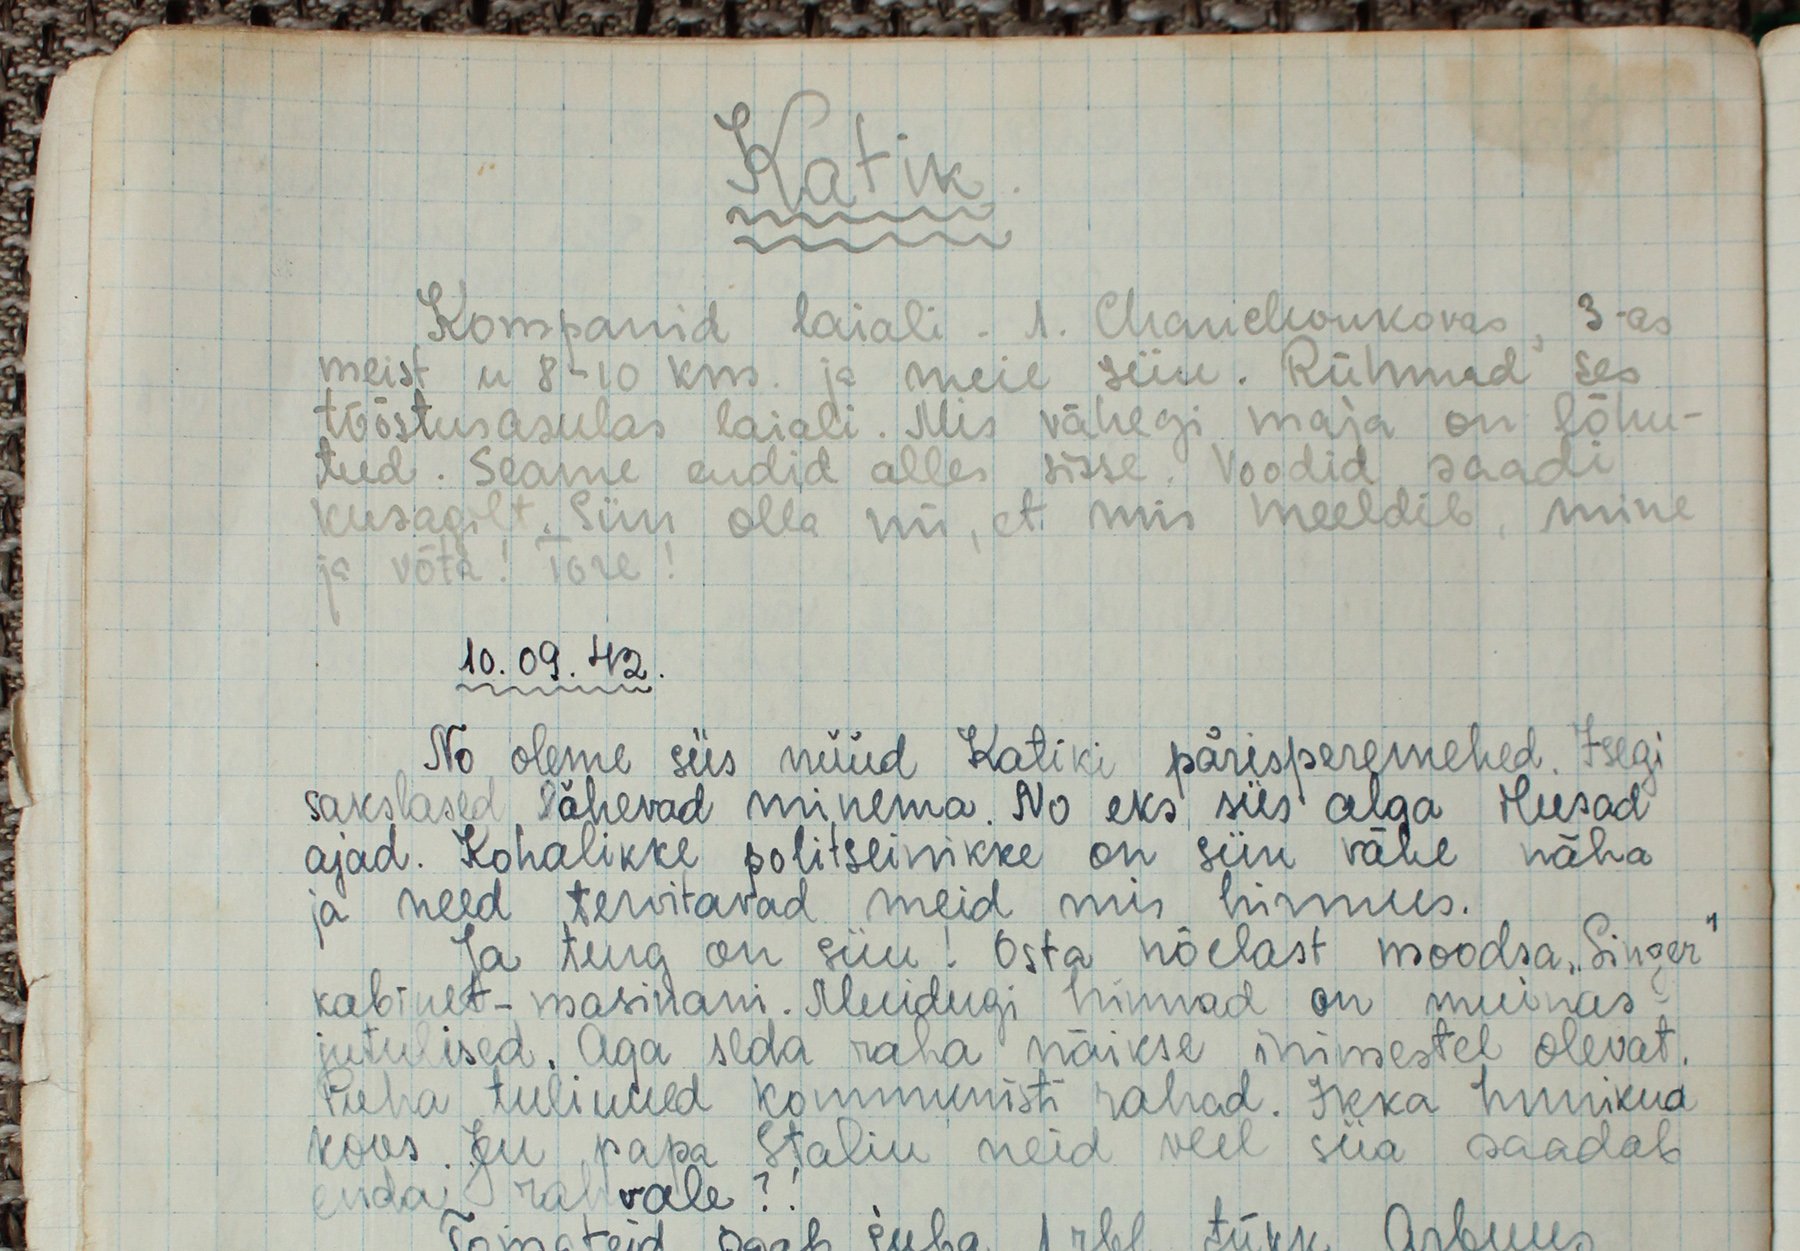 Katik.
Kompanid laiali - 1. Chanchonkovas, 3-as
meist u 8-10 km. ja meie siin. Rühmad ses
tööstusasulas laiali. Mis vähegi maja on lõhu-
tud. Seame endid alles sisse. Voodid saadi
kusagilt. Siin olla nii, et mis meeldib, mine
ja võta! Tore!
10.09.42.
No oleme siis nüüd Katiki pärisperemehed. Isegi
sakslased lähevad minema. No eks siis alga ilusad
ajad. Kohalikke politseinikke on siin vähe näha
ja need tervitavad meid mis hirmus.
Ja turg on siin! Osta nõelast moodsa „Singer"
kabinet-masinani. Muidugi hinnad on muinas-
jutulised. Aga seda raha näikse inimestel olevat.
Puha tulinued kommunisti rahad. Ikka hunnikud
koos. Ju papa Stalin neid veel siia saadab
enda rahvale?!
Tomateid saab juba 1 rbl. tükk. Arbuus